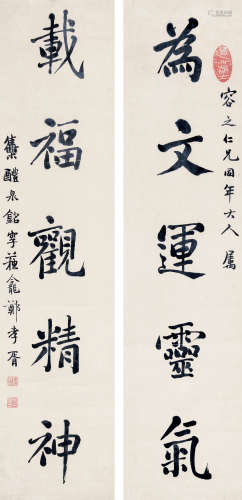 為文運靈氣
容之仁兄同年大人屬
載福觀精神
集醴泉銘字蘇龕鄭孝胥